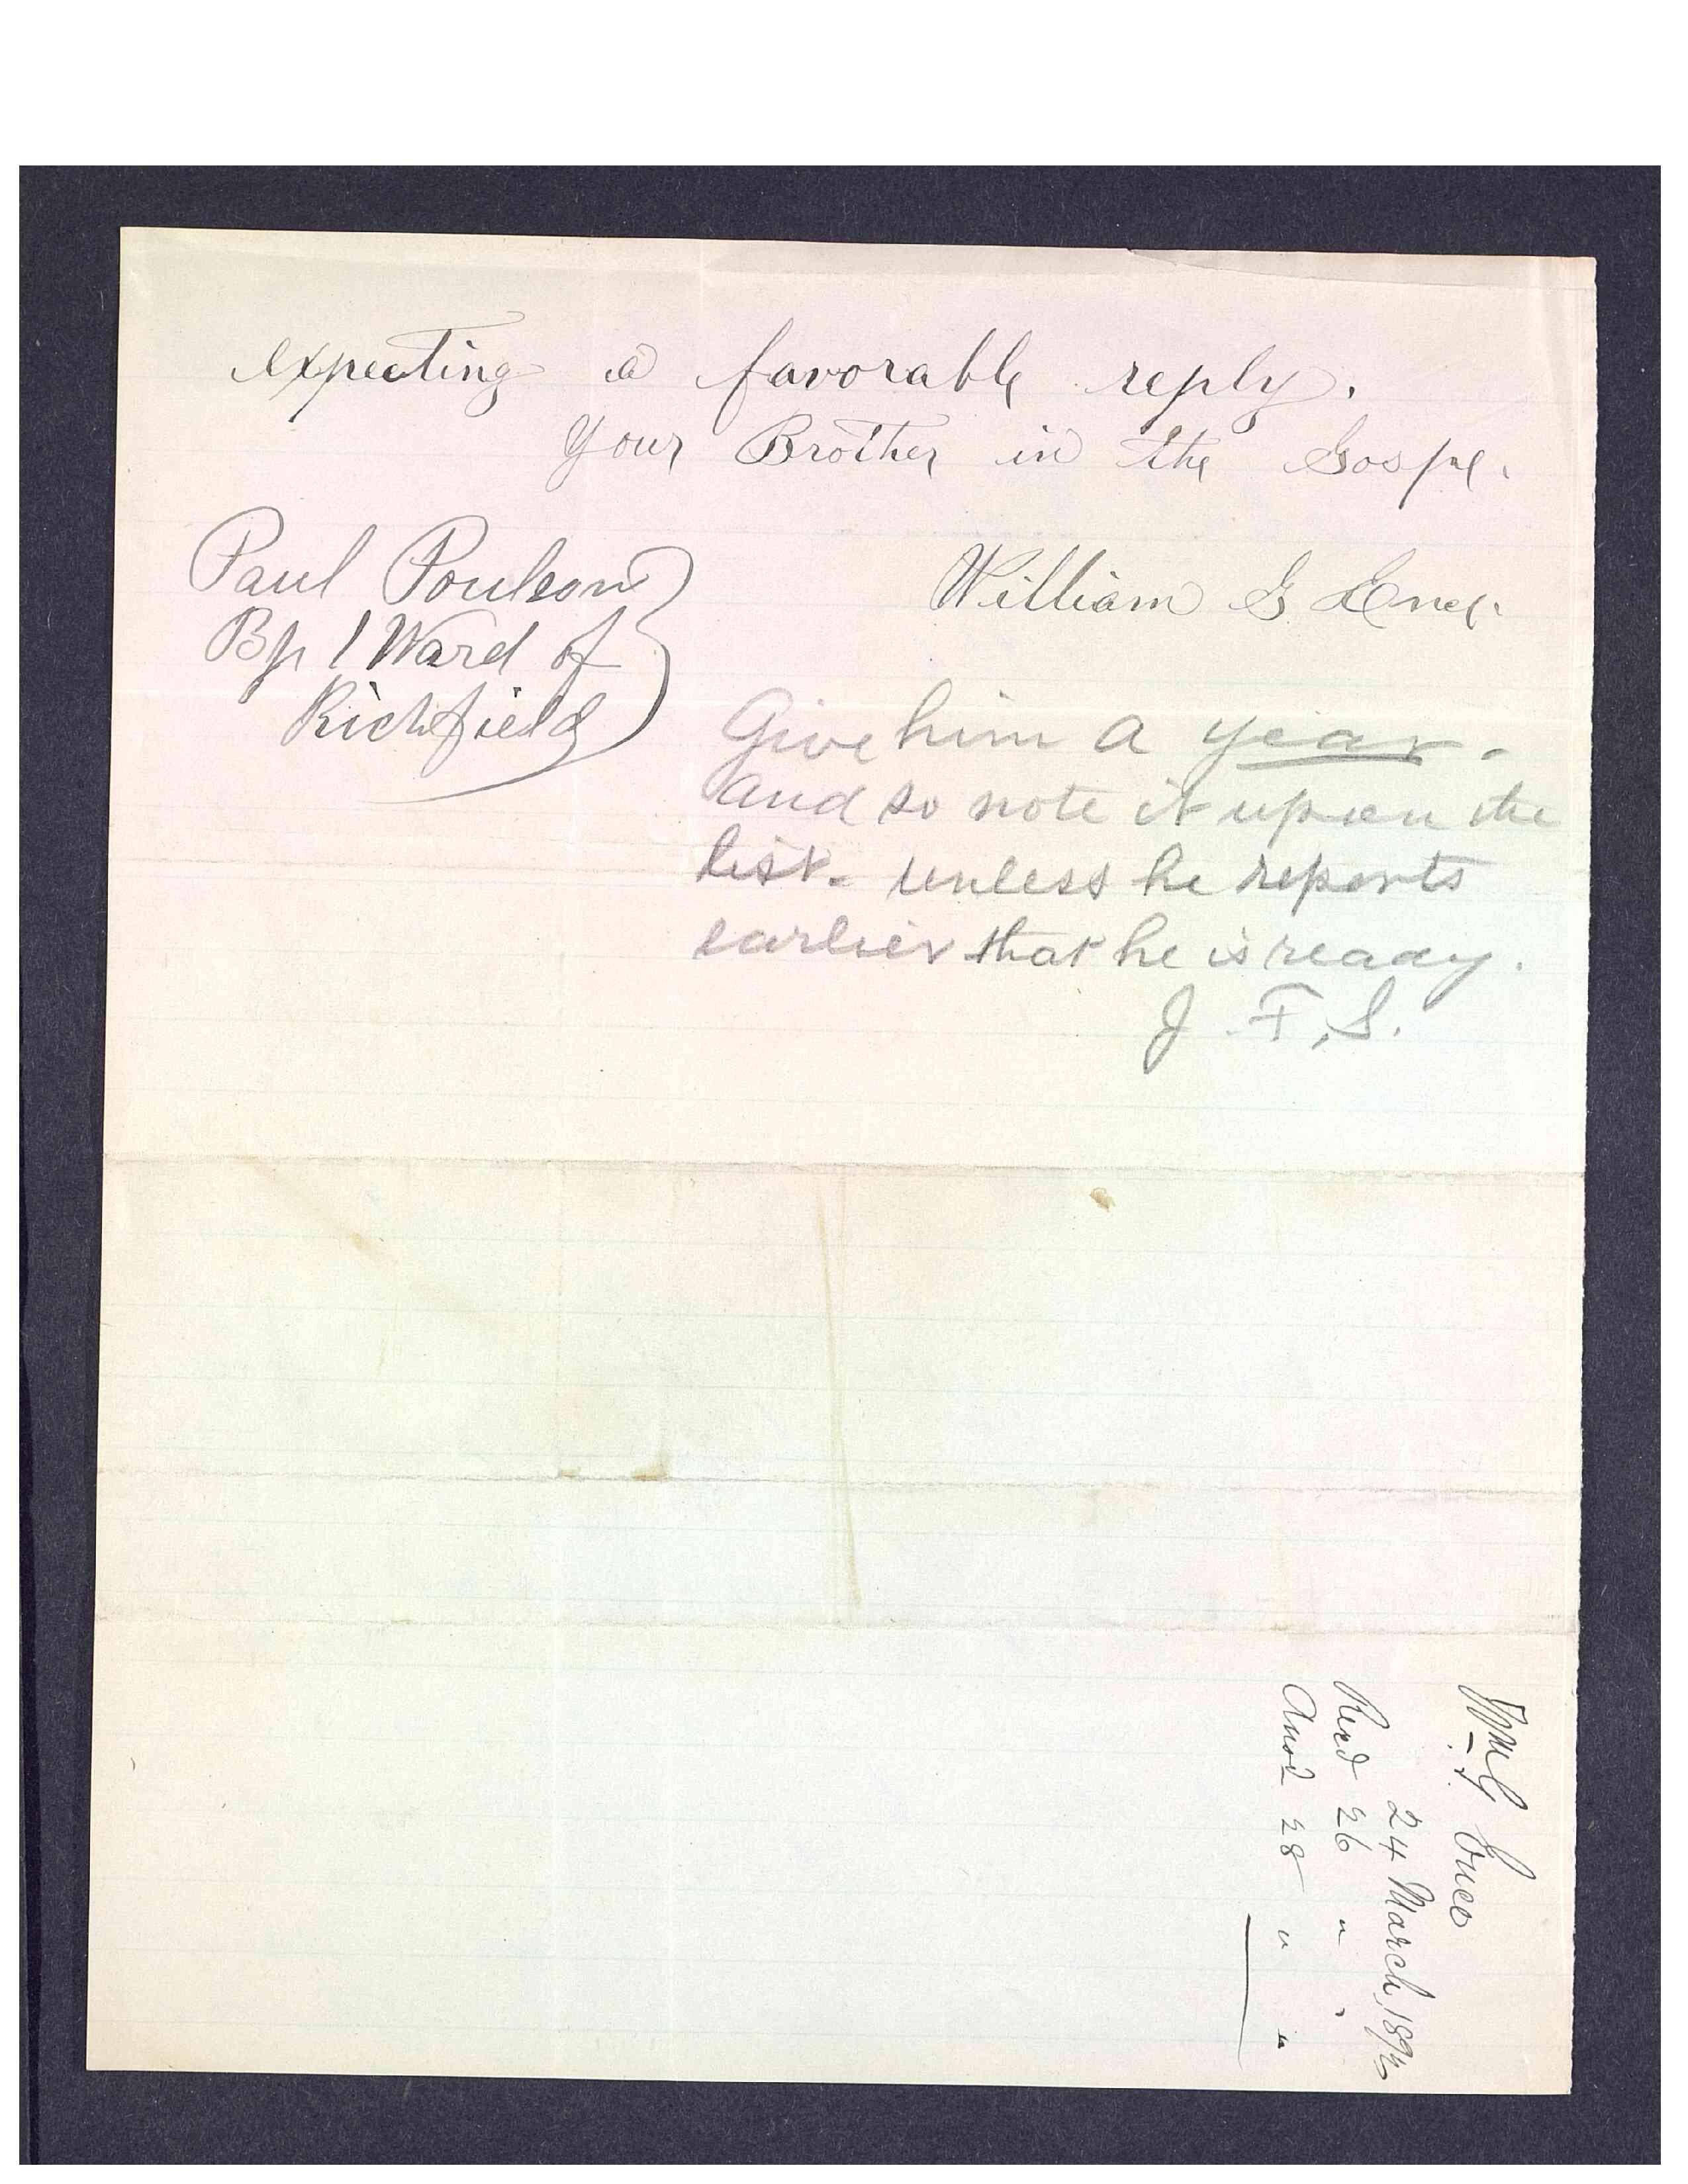 expecting a favorable reply.
Your Brother in the Gospel.
William G Enez.
Paul Poulson
Bp 1 Ward of
Richfield
Give him a year.
and so note it upon the
list. unless he reports
earlier that he is ready.
J. F. S.
Wm G.
24 March, 189
Recd 26 " "
Ansd 28 " "